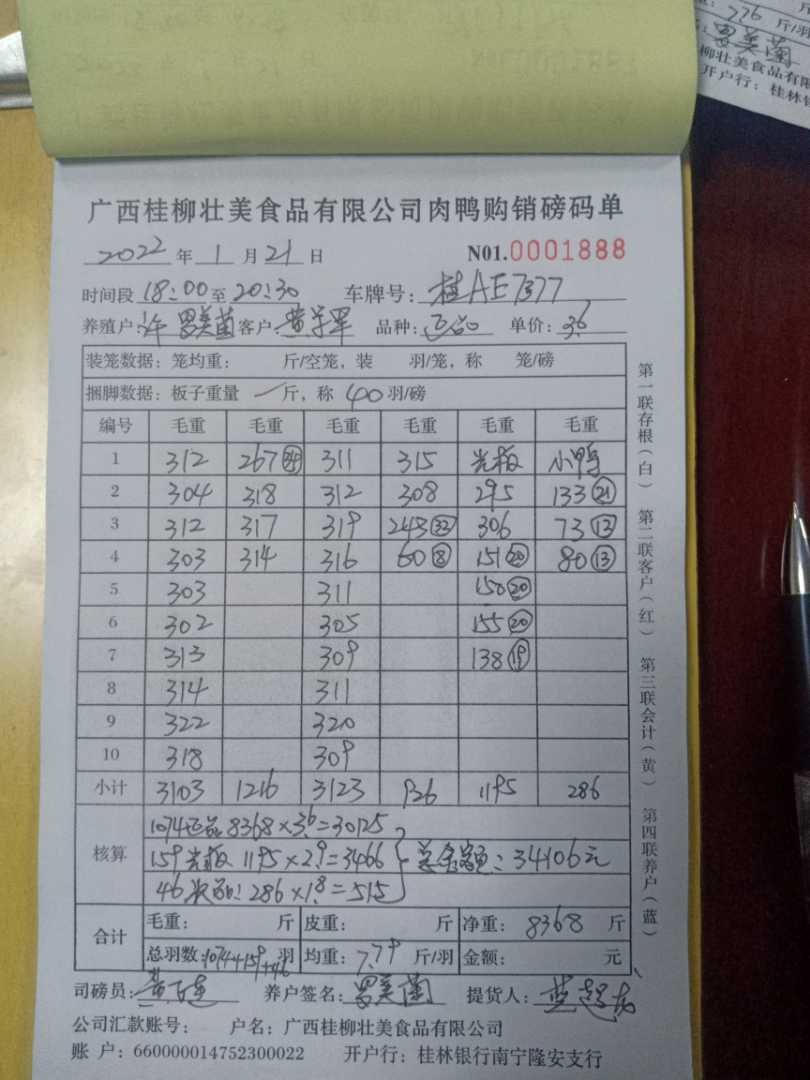 776 斤/羽
罗美菌
柳壮美食品有限
开户行：桂林银
广西桂柳壮美食品有限公司肉鸭购销磅码单
2022 年 1 月 21 日 N01.0001888
时间段 18:00 至 20:30 车牌号: 桂AE7377
养殖户: 许 罗美菌 客户: 黄 品种: 正品 单价: 3.6
装笼数据: 笼均重: 斤/空笼, 装 羽/笼, 称 笼/磅
捆脚数据: 板子重量 一 斤, 称 40 羽/磅
编号 毛重 毛重 毛重 毛重 毛重 毛重
1 312 267(34) 311 315 光板 小鸭
2 304 318 312 308 295 133(21)
3 312 317 319 243(32) 306 73(12)
4 303 314 316 60(8) 151(20) 80(13)
5 303 311 150(20)
6 302 305 155(20)
7 313 309 138(19)
8 314 311
9 322 320
10 318 309
小计 3103 1216 3123 926 1195 286
核算
1074正品 8368×3.6=30125
159光板 1195×2.9=3466 总金额: 34106元
46次品: 286×1.8=515
合计
毛重: 斤 皮重: 斤 净重: 8368 斤
总羽数: 1074+159+46 羽 均重: 7.79 斤/羽 金额: 元
司磅员: 黄 养户签名: 罗美菌 提货人: 蓝
公司汇款账号: 户名: 广西桂柳壮美食品有限公司
账 户: 660000014752300022 开户行: 桂林银行南宁隆安支行
第一联存根(白) 第二联客户(红) 第三联会计(黄) 第四联养户(蓝)